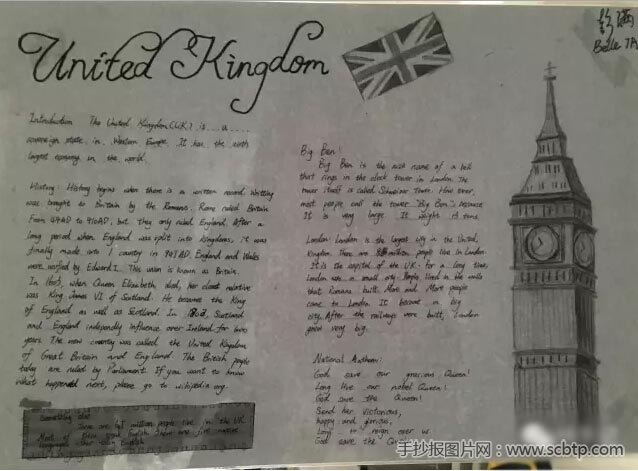 United Kingdom
Belle 7A
Introduction The United Kingdom (UK) is a
sovereign state in Western Europe. It has the sixth
largest economy in the world.
History: History begins when there is a written record Writting
was bought to Britain by the Romans. Rome ruled Britain
From 44AD to 410AD. but they only ruled England. After a
long period when England was split into kingdoms. it was
finally made into 1 country in AD. England and Wales
were unified by Edward I. This union is known as Britain.
In when Queen Elizabeth died, her closet relative
was King James VI of Scotland. He became the King
of England as well as Scotland. In Scotland
and England influence over Ireland for
years. The new country was called the United Kingdom
of Great Britain and England. The British people
today are ruled by Parliament. If you want to know
what happened next, please go to wikipedia.org.
Something else
There are million people live in the UK
Most of them speak English
Big Ben!
Big Ben is the nick name of a bell
that rings in the clock tower in London. The
tower itself is called Tower. How ever,
most people call the tower "Big Ben". because
It is very large. It weight
London: London is the largest city in the United
Kingdom. There are million people live in London
It is the capital of the UK. For a long time,
London was a small city. People lived in the walls
that Romans built. More and More people
came to London. It became a big
city. After the railways were built, London
grew very big.
National Anthem:
God save our gracious Queen!
Long live our nobel Queen!
God save the Queen!
Send her victorious,
happy and glorious,
Long to reign over us
God save the
手抄报图片网:www.scbtp.com